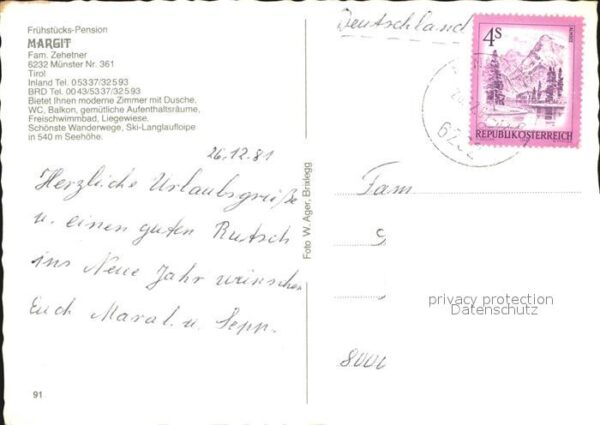 Frühstücks-Pension
MARGIT
Fam. Zehetner
6232 Münster Nr. 361
Tirol
Inland Tel. 0 53 37/32 5 93
BRD Tel. 00 43/53 37/32 5 93
Bietet Ihnen moderne Zimmer mit Dusche,
WC, Balkon, gemütliche Aufenthaltsräume,
Freischwimmbad, Liegewiese.
Schönste Wanderwege, Ski-Langlaufloipe
in 540 m Seehöhe.
26.12.81
Herzliche Urlaubsgrüße
u. einen guten Rutsch
ins Neue Jahr wünschen
Euch u. Sepp.
91
Foto W. Ager, Brixlegg
Deutschland
4S
REPUBLIK ÖSTERREICH
6232
Fam
privacy protection
Datenschutz